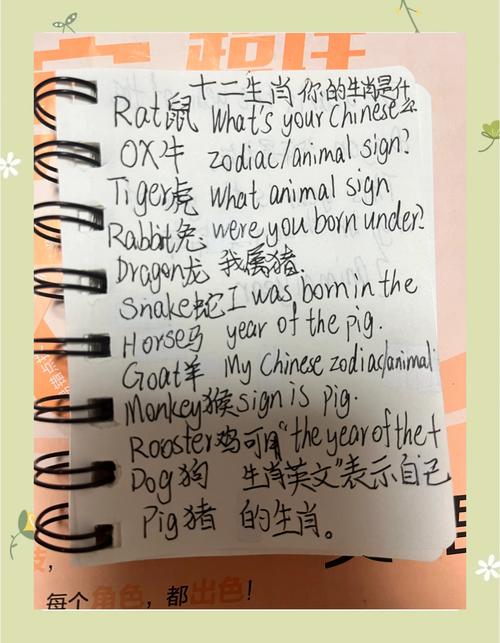 十二生肖 你的生肖是什么
Rat鼠 What's your Chinese
OX牛 zodiac/animal sign?
Tiger虎 what animal sign
Rabbit兔 were you born under?
Dragon龙 我属猪.
Snake蛇 I was born in the
Horse马 year of the pig.
Goat羊 My Chinese zodiac/animal
Monkey猴 sign is pig.
Rooster鸡 可用"the year of the+
Dog狗 生肖英文"表示自己
Pig猪 的生肖。
每个角色，都出色！